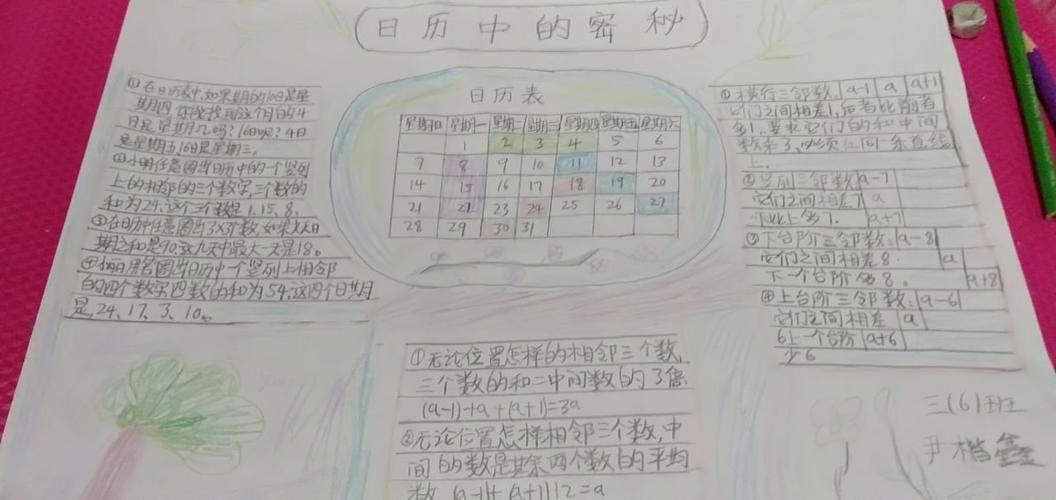 日历中的密秘
①在日历表中,如果某月的10日是星
期四,你能找出这个月的4
日是星期几吗?16日呢?4日
是星期五,16日是星期三。
②小明任意圈出日历中的一个竖列
上的相邻的三个数字,三个数的
和为24,这个三个数是1、15、8。
③在日历中任意圈出3X3个数,如果九天日
期之和是90,这九天中最大一天是18。
用笔圈出日历中一个竖列上相邻
的四个数字,四数的和为54,这四个日期
是24、17、3、10。
日历表
星期日 星期一 星期二 星期三 星期四 星期五 星期六
1 2 3 4 5 6
7 8 9 10 11 12 13
14 15 16 17 18 19 20
21 22 23 24 25 26 27
28 29 30 31
①横行三邻数 a-1 a a+1
它们之间相差1,后者比前者
多1,要求它们的和中间
数乘3,必须在同一条直线
上。
②竖列三邻数 a-7
它们之间相差7 a
下比上多7. a+7
③下台阶三邻数: a-8
它们之间相差8. a
下一个台阶多8. a+8
④上台阶三邻数: a-6
它们之间相差 a
6上一个台阶 a+6
少6
①无论位置怎样的相邻三个数,
三个数的和=中间数的3倍
(a-1)+a+(a+1)=3a
②无论位置怎样相邻三个数,中
间的数是其余两个数的平均
数 (a-1)+(a+1)12=a
三(6)班
尹楷鑫